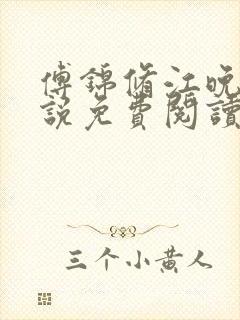 傅锦脩江晚
說免費閱讀
三个小黄人